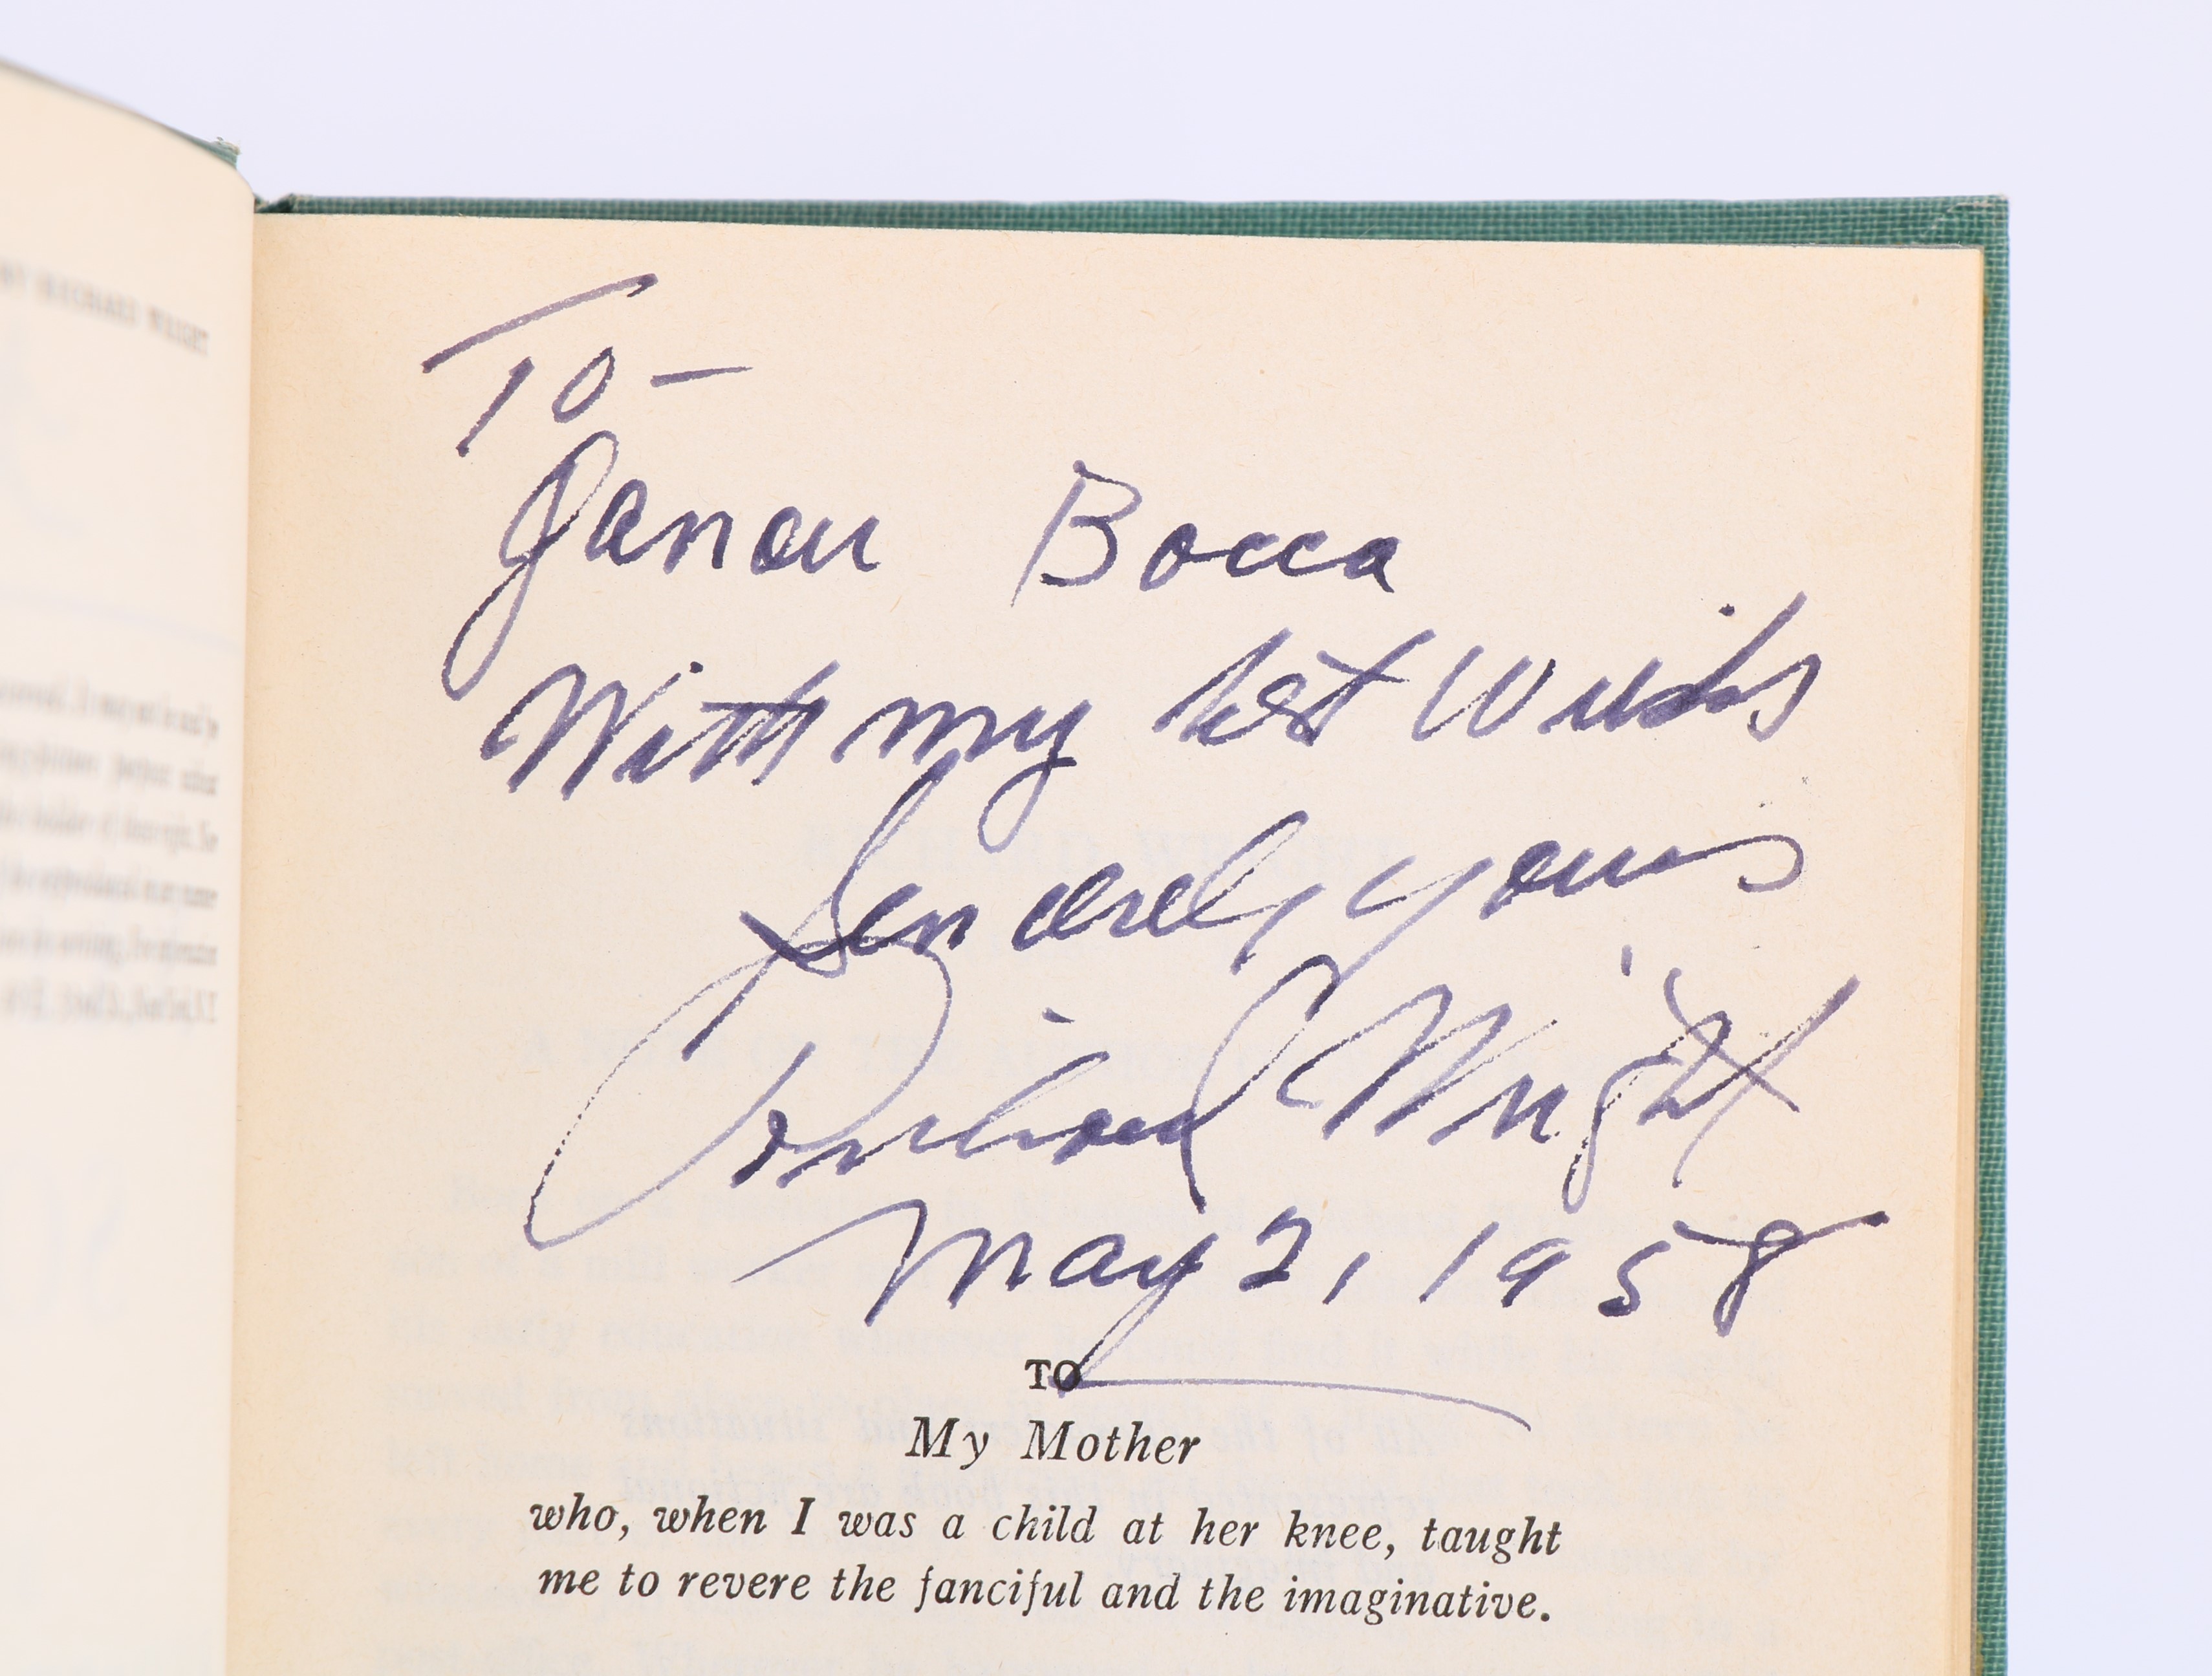 BY RICHARD WRIGHT
To—
Janou Bocca
With my best wishes
Sincerely yours
Richard Wright
May 2, 1958
TO
My Mother
who, when I was a child at her knee, taught
me to revere the fanciful and the imaginative.